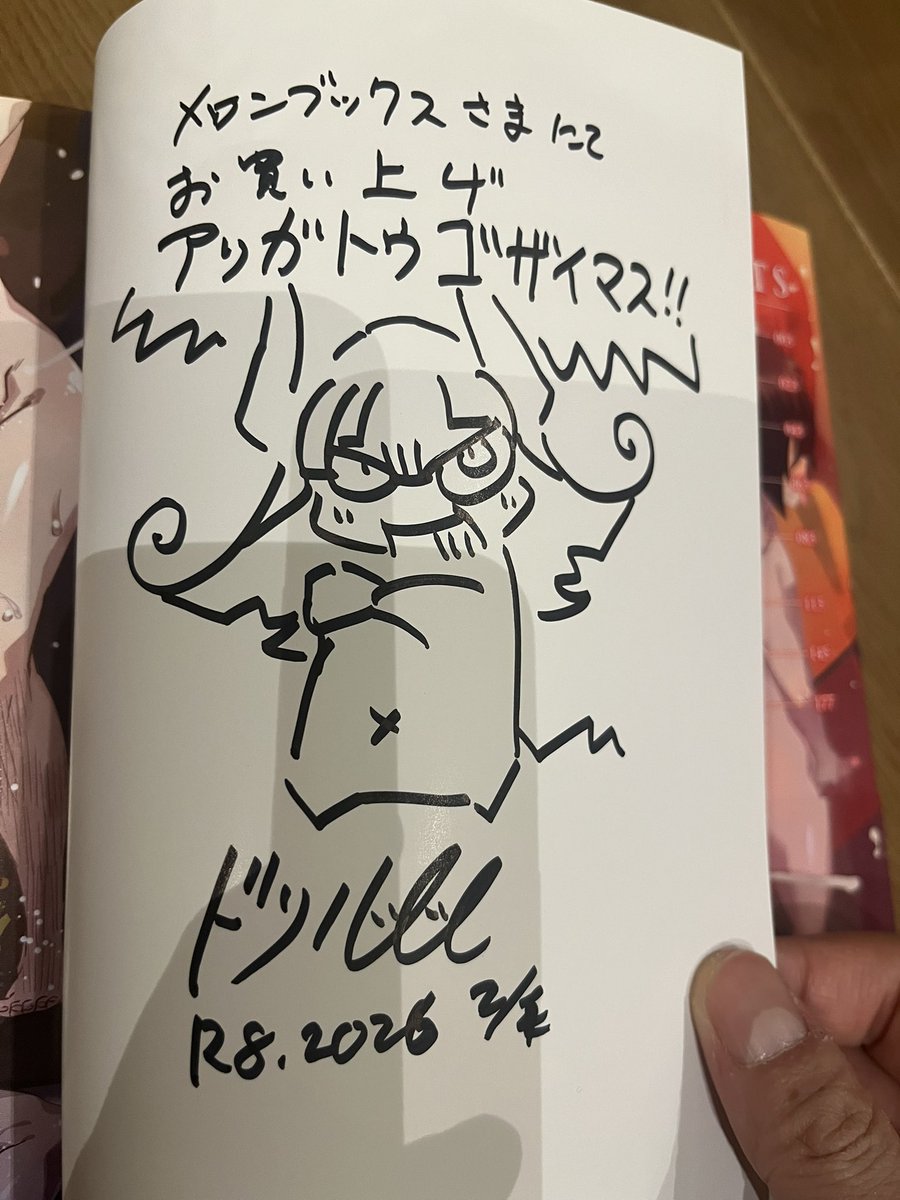 メロンブックスさまにて
お買い上げ
アリガトウゴザイマス!!
R8.2026 2/末